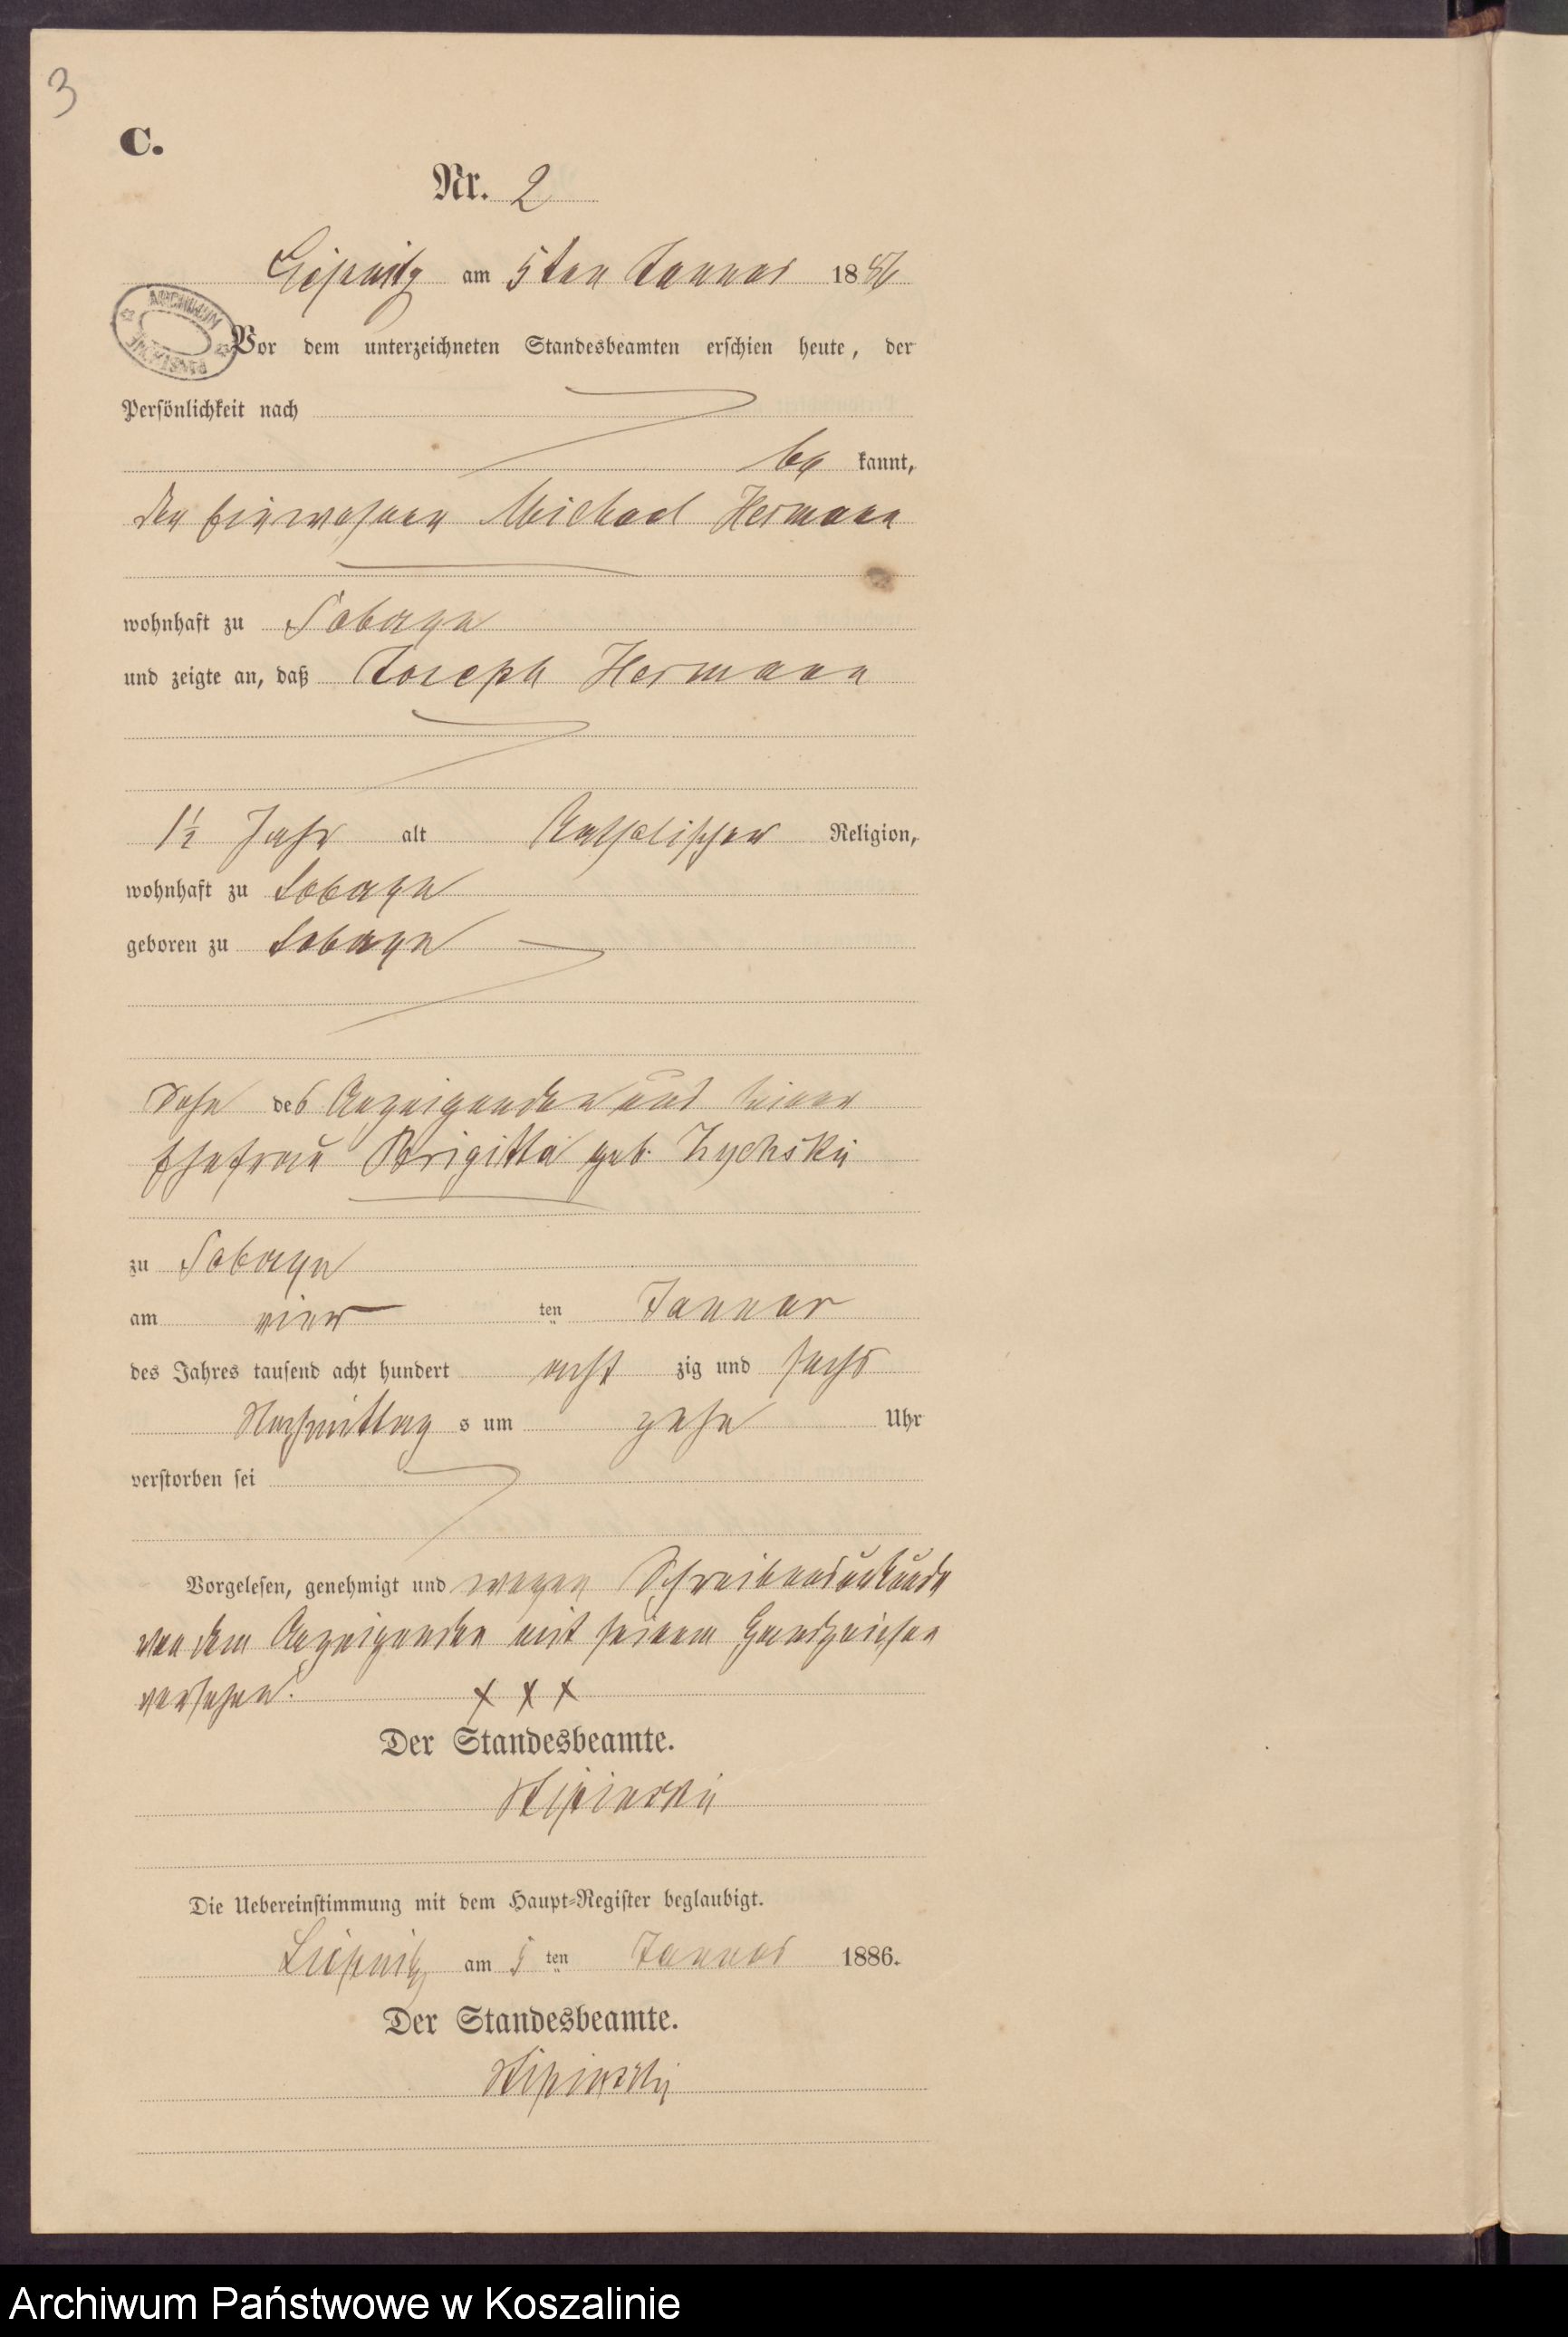 3
C.
Nr. 2
Liepnitz am 5ten Januar 1886
ARCHIWUM PAŃSTWOWE
Vor dem unterzeichneten Standesbeamten erschien heute, der
Persönlichkeit nach
be kannt,
der Einwohner Michael Hermann
wohnhaft zu
und zeigte an, daß Joseph Hermann
1½ Jahr alt Katholischer Religion,
wohnhaft zu
geboren zu
Sohn des Anzeigenden und seiner
Ehefrau Brigitta geb.
zu
am vier ten Januar
des Jahres tausend acht hundert acht zig und sechs
Nachmittag s um zehn Uhr
verstorben sei
Vorgelesen, genehmigt und wegen Schreibensunkunde
von dem Anzeigenden mit seinem Handzeichen
versehen. X X X
Der Standesbeamte.
Die Uebereinstimmung mit dem Haupt-Register beglaubigt.
Liepnitz am 5 ten Januar 1886.
Der Standesbeamte.
Archiwum Państwowe w Koszalinie